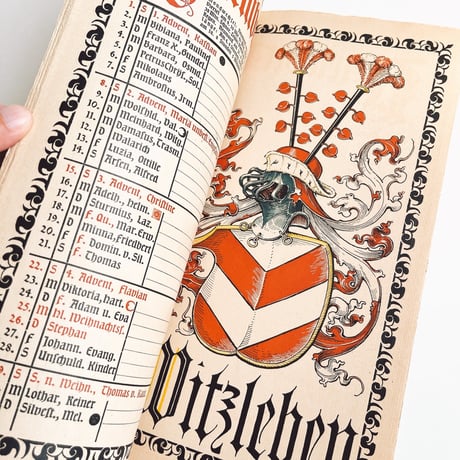 1. S 1. Advent, Kassian
2. M Bibiana, Pauline
3. D Franz X., Gunder
4. M Barbara, Bernd.
5. D Petrus Chrys., Sol.
6. F Nikolaus
7. S Ambrosius, Irm.
8. S 2. Advent, Mariä unbefl.
9. M Wolfhild, Val.
10. D Meinhard, Wilh.
11. M Damasus, Trasm.
12. D Walarich
13. F Luzia, Ottilie
14. S Arsen, Alfred
15. S 3. Advent, Christine
16. M Adelh., Helm.
17. D Sturmius, Laz.
18. M F. Qu., Mar. Erw.
19. D Minna, Friedbert
20. F F. Domin. v. Sil.
21. S F. Thomas
22. S 4. Advent, Flavian
23. M Viktoria, Hart.
24. D F. Adam u. Eva
25. M Hl. Weihnachtsf.
26. D Stephan
27. F Johann. Evang.
28. S Unschuld. Kinder
29. S S. n. Weihn., Thomas v. Kan.
M Lothar, Reiner
D Silvest., Mel.
Witzleben